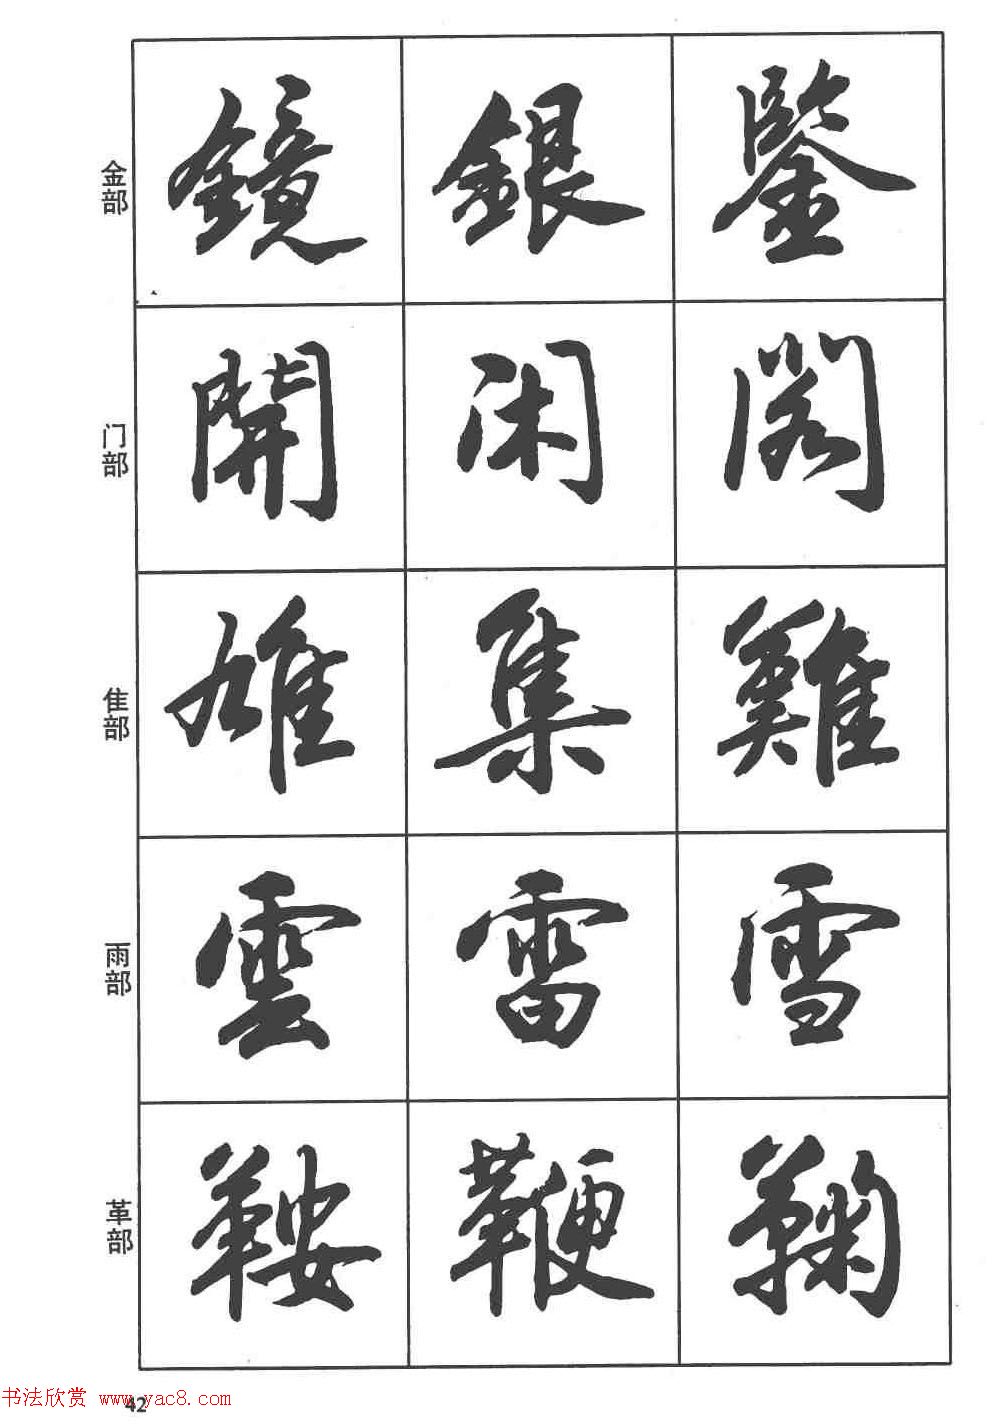 金部 鏡 銀 鑒
门部 開 闲 阁
隹部 雄 集 難
雨部 雲 雷 雪
革部 鞍 鞭 鞠
书法欣赏 www.yac8.com
42